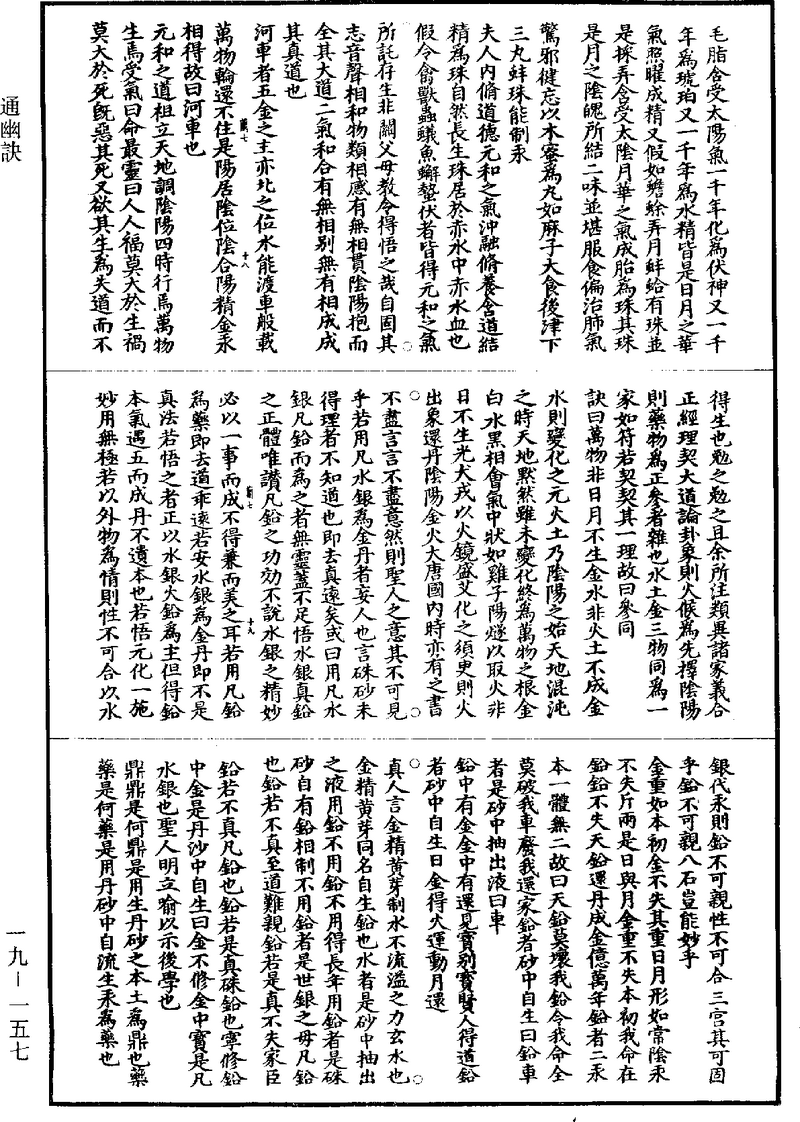 毛脂含受太陽氣一千年化為伏神又一千
年為琥珀又一千年為水精皆是日月之華
氣照曜成精又假如蟾蜍弄月蚌蛤有珠並
是採弄含受太陰月華之氣成胎為珠其珠
是月之陰魄所結二味並堪服食偏治肺氣
驚邪健忘以木蜜為丸如麻子大食後津下
三丸蚌珠能制汞
夫人內脩道德元和之氣沖融脩養含道結
精為珠自然長生珠居於赤水中赤水血也
假令禽獸蟲蟻魚蠏蟄伏者皆得元和之氣
所託存生非關父母教令得悟之哉自固其
志音聲相和物類相感有無相貫陰陽抱而
全其大道二氣和合有無相別無有相成成
其真道也
河車者五金之主亦北之位水能渡車般載
萬物輪還不住是陽居陰位陰合陽精金汞
相得故曰河車也
元和之道祖立天地調陰陽四時行焉萬物
生焉受氣曰命最靈曰人人福莫大於生禍
莫大於死既惡其死又欲其生為失道而不
得生也勉之勉之且余所注類異諸家義合
正經理契大道論卦象則火候為先擇陰陽
則藥物為正參者雜也水土金三物同為一
家如符若契契其一理故曰參同
訣曰萬物非日月不生金水非火土不成金
水則變化之元火土乃陰陽之始天地混沌
之時天地默然雖未變化終為萬物之根金
白水黑相會氣中狀如雞子陽燧以取火非
日不生光犬戎以火鏡盛艾化之須臾則火
出象還丹陰陽金火大唐國內時亦有之書
不盡言言不盡意然則聖人之意其不可見
乎若用凡水銀為金丹者妄人也言硃砂未
得理者不知道也即去真遠矣或曰用凡水
銀凡鉛而為之者無靈蓋不足悟水銀真鉛
之正體唯讚凡鉛之功効不說水銀之精妙
必以一事而成不得兼而美之耳若用凡鉛
為藥即去道乖遠若安水銀為金丹即不是
真法若悟之者正以水銀火鉛為主但得鉛
本氣遇五而成丹不遺本也若悟元化一施
妙用無極若以外物為情則性不可合以水
銀代汞則鉛不可親性不可合三宫其可固
乎鉛不可親八石豈能妙乎
金重如本初金不失其重日月形如常陰汞
不失斤兩是日與月金重不失本初我命在
鉛鉛不失天鉛還丹成金億萬年鉛者二汞
本一體無二故曰天鉛莫壞我鉛令我命全
莫破我車廢我還家鉛者砂中自生曰鉛車
者是砂中抽出液曰車
鉛中有金金中有還見寶别寶賢人得道鉛
者砂中自生日金得火運動月還
真人言金精黄芽制水不流溢之力玄水也
金精黄芽同名自生鉛也水者是砂中抽出
之液用鉛不用鉛不用得長年用鉛者是硃
砂自有鉛相制不用鉛者是世銀之母凡鉛
也鉛若不真至道難親鉛若是真不失家臣
鉛若不真凡鉛也鉛若是真硃鉛也寧修鉛
中金是丹沙中自生曰金不修金中寶是凡
水銀也聖人明立喻以示後學也
鼎鼎是何鼎是用生丹砂之本土為鼎也藥
藥是何藥是用丹砂中自流生汞為藥也
通幽訣
一九—一五七